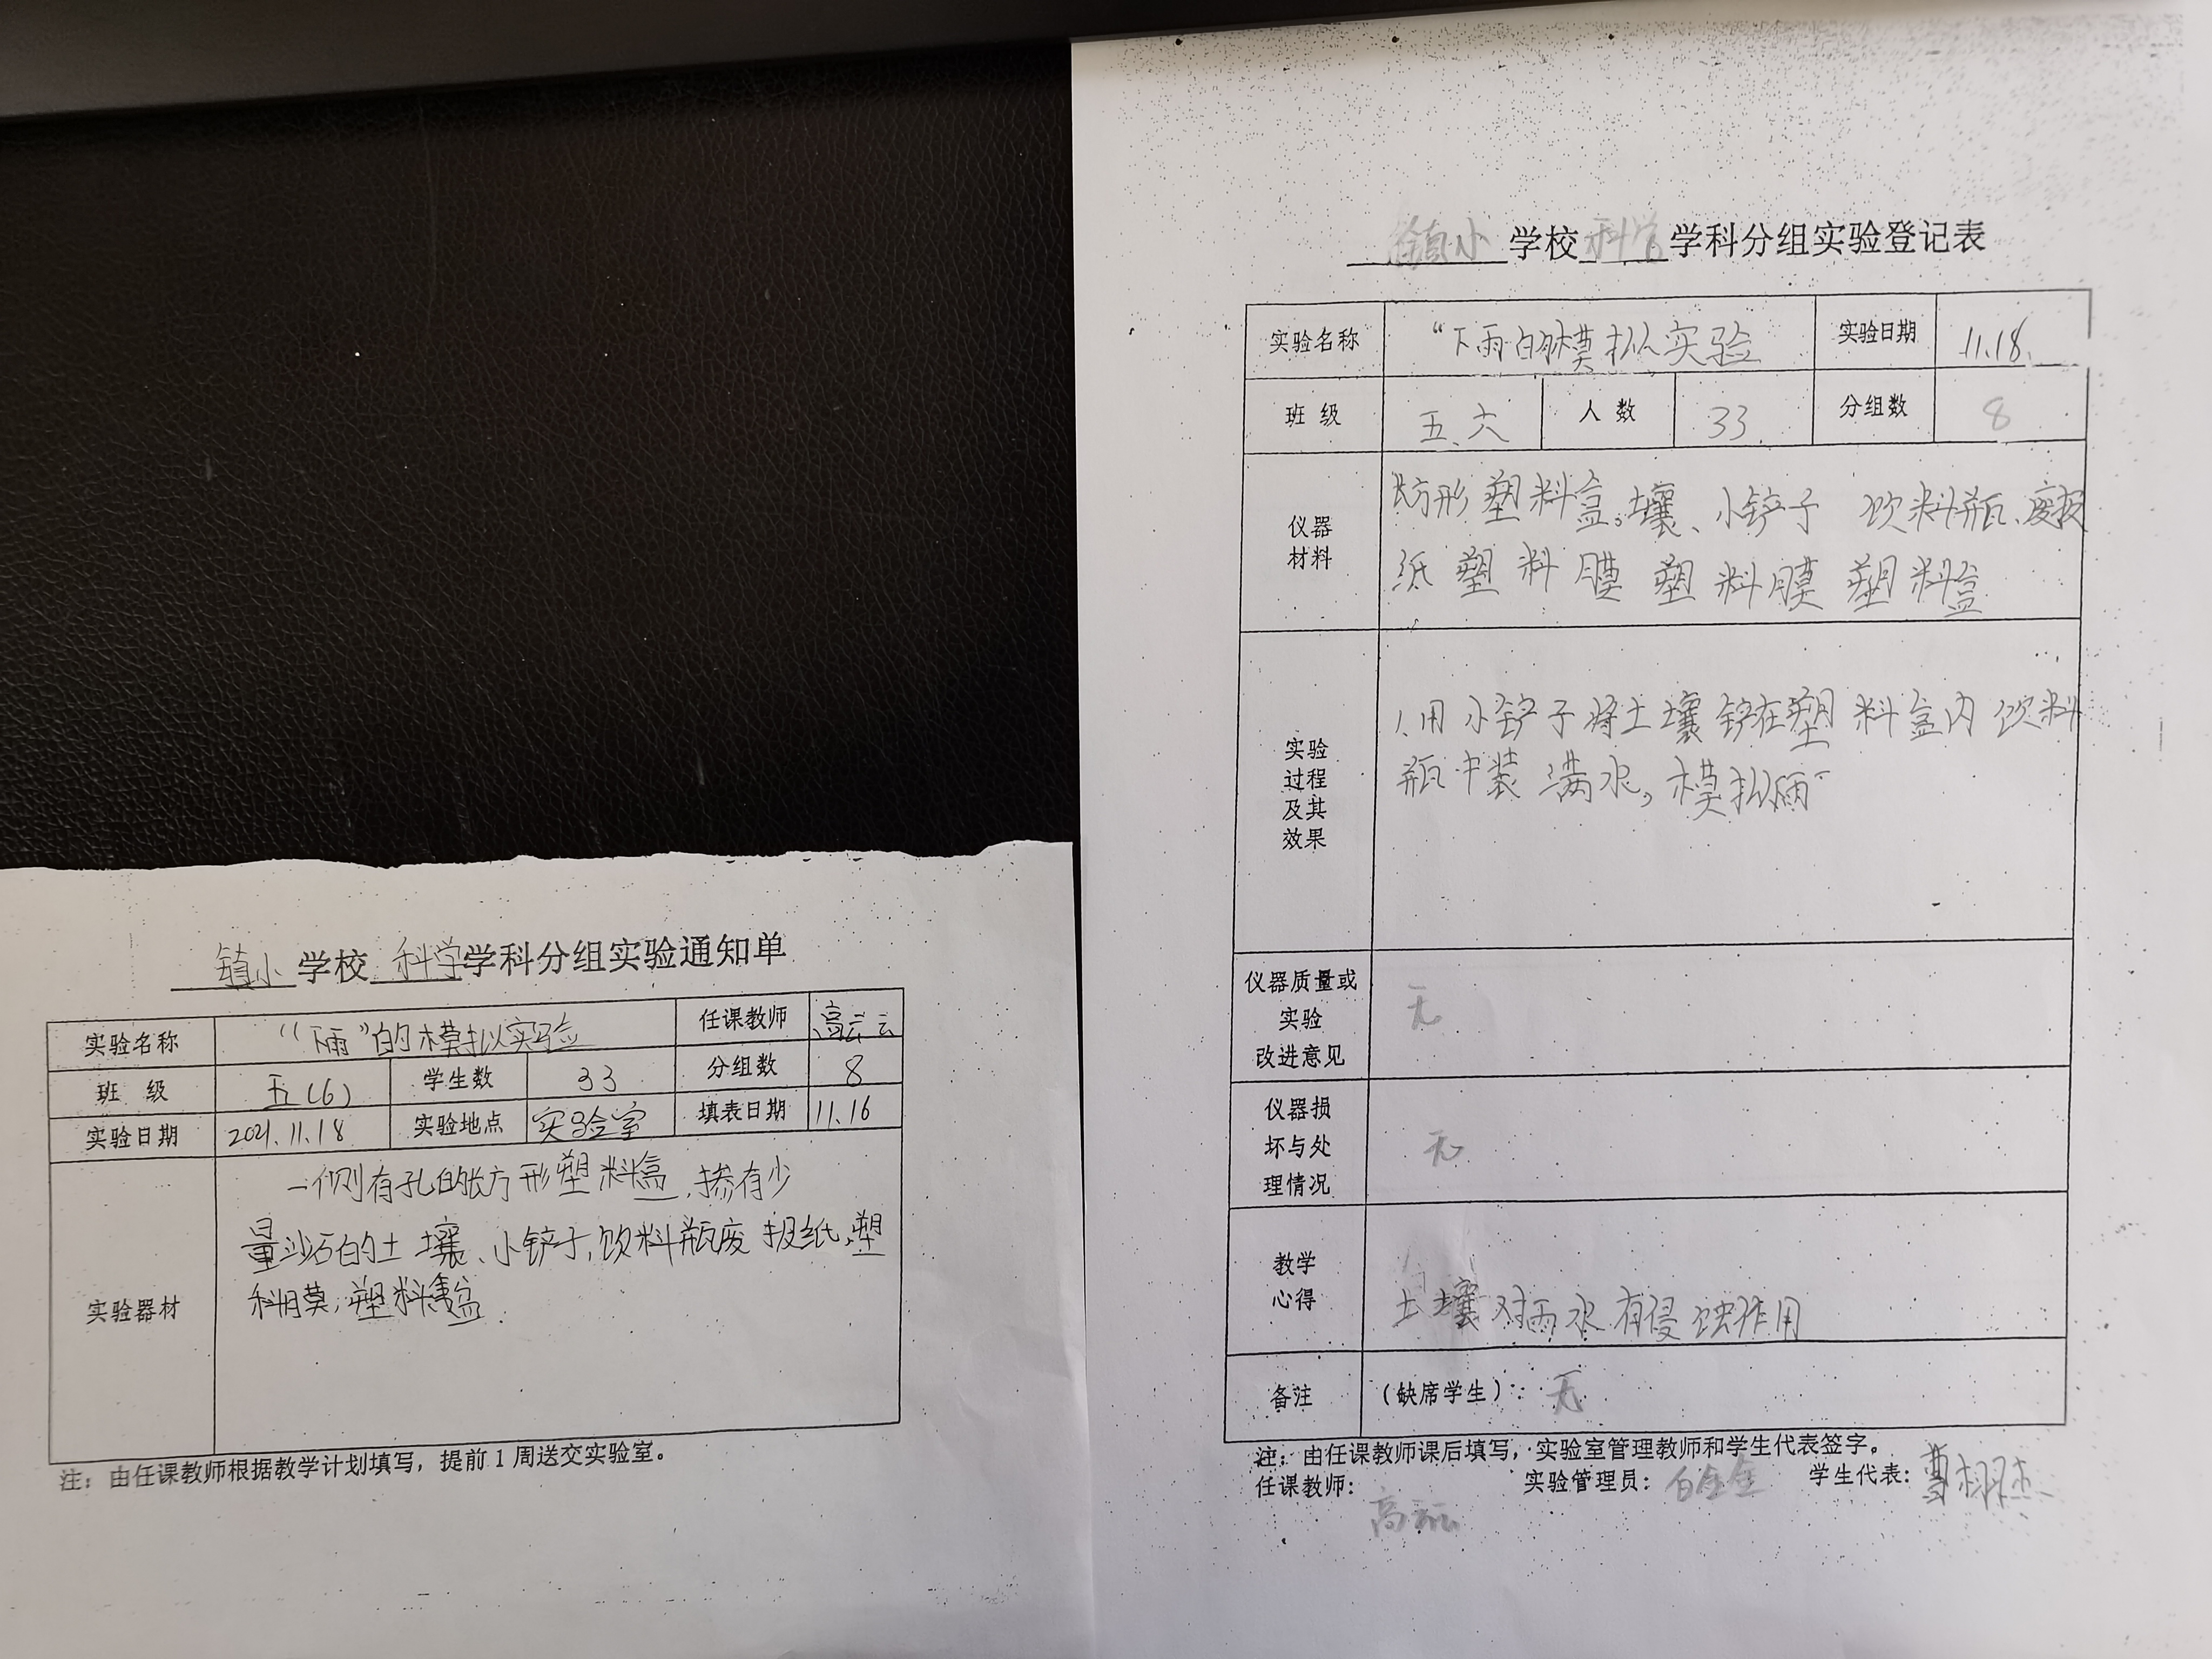 镇小学校科学学科分组实验通知单
实验名称 “下雨”的模拟实验 任课教师 高云云
班 级 五(6) 学生数 33 分组数 8
实验日期 2021.11.18 实验地点 实验室 填表日期 11.16
一侧有孔的长方形塑料盒、掺有少
实验器材 量沙石的土壤、小铲子,饮料瓶废报纸、塑
料膜,塑料盒
注：由任课教师根据教学计划填写，提前1周送交实验室。
镇小学校科学学科分组实验登记表
实验名称 “下雨的模拟实验 实验日期 11.18.
班 级 五、六 人 数 33 分组数 8
仪器 长方形塑料盒。壤、小铲子 饮料瓶、废报
材料 纸 塑料膜 塑料膜 塑料盒
实验 1.用小铲子将土壤铲在塑料盒内 饮料
过程 瓶中装满水，模拟雨”
及其
效果
仪器质量或
实验 无
改进意见
仪器损
坏与处 无
理情况
教学
心得 土壤对雨水有侵蚀作用
备注 （缺席学生）：无
注：由任课教师课后填写，实验室管理教师和学生代表签字。
任课教师： 实验管理员： 学生代表：
高云云